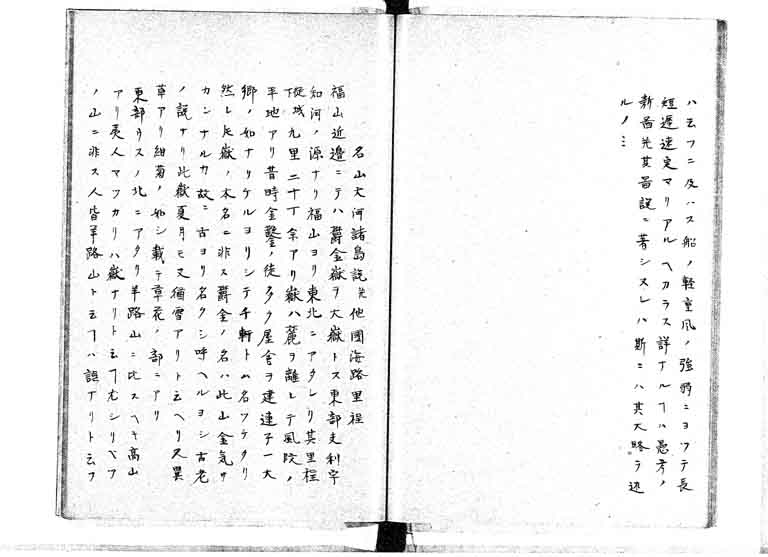 ハ云フニ及ハス船ノ軽重風ノ強弱ニヨツテ長
短遅速定マリアルヘカラス詳ナルヿハ愚考ノ
新図并其図説ニ著シヌレハ斯ニハ其大略ヲ述
ルノミ
名山大河諸島説并他國海路里程
福山近邉ニテハ爵金嶽ヲ大嶽トス東部支利宇
知河ノ源ナリ福山ヨリ東北ニアタレリ其里程
城九里二十丁余アリ嶽ハ麓ヲ離レテ風院ノ
平地アリ昔時金鑿ノ徒多ク屋舎ヲ建連子一大
郷ノ如ナリケルヨリシテ千軒トム名フケタリ
然レ𪜈嶽ノ本名ニ非ス爵金ノ名ハ此山金気サ
カンナルカ故ニ古ヨリ名クシ呼ヘルヨシ古老
ノ説ナリ此嶽夏月モ又猶雪アリト云ヘリ又異
草アリ紺菊ノ如シ載テ草花ノ部ニアリ
東部ウスノ北ニアタリ羊路山ニ比スヘキ高山
アリ夷人マツカリハ嶽ナリト云ヿオシリベツ
ノ山ニ非ス人皆羊路山ト云フハ誤ナリト云フ